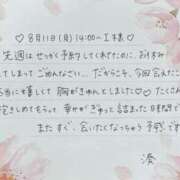 ♡ 8月11日(月) 14:00〜 I様 ♡
先週はせっかく予約してくれてたのに、お休み
してしまってごめんなさい… だからこそ、今回会えたこ
本当に嬉しくて 胸がきゅんとしました♡ たくさん
抱きしめてもらって 幸せがぎゅっと詰まった時間で
またすぐ、会いたくなっちゃう予感です
湊